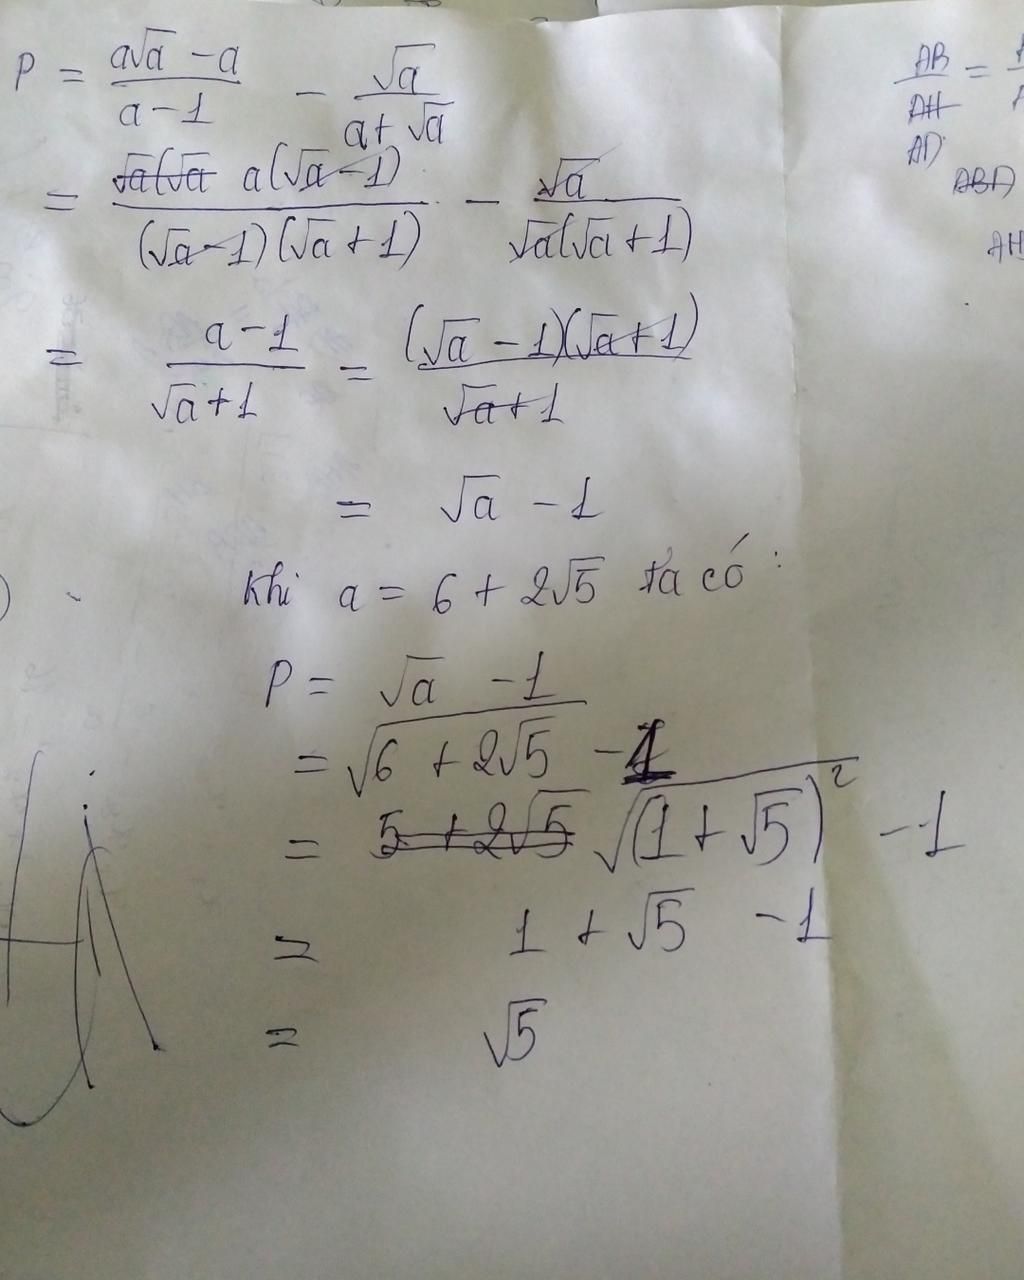 P = (a√a - a)/(a - 1) - √a/(a + √a)
= a(√a - 1)/((√a - 1)(√a + 1)) - √a/(√a(√a + 1))
= (a - 1)/(√a + 1) = ((√a - 1)(√a + 1))/(√a + 1)
= √a - 1
) Khi a = 6 + 2√5 ta có :
P = √a - 1
= √(6 + 2√5) - 1
= 5 + 2√5 √((1 + √5)²) - 1
= 1 + √5 - 1
= √5
AB/AH =
AD
ABD
AH